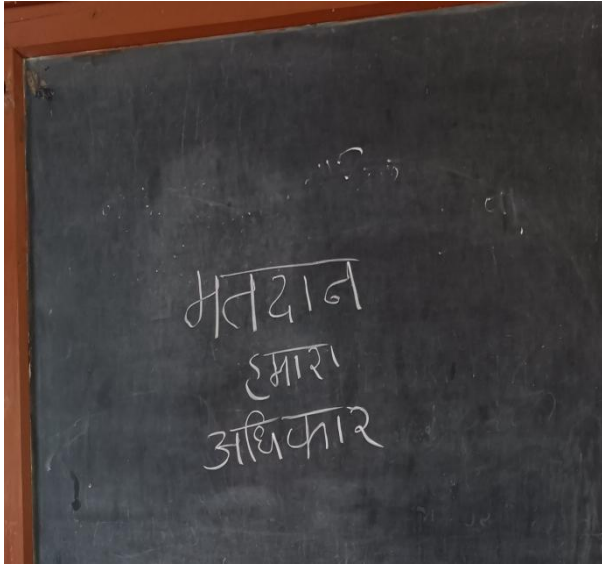 मतदान
हमारा
अधिकार